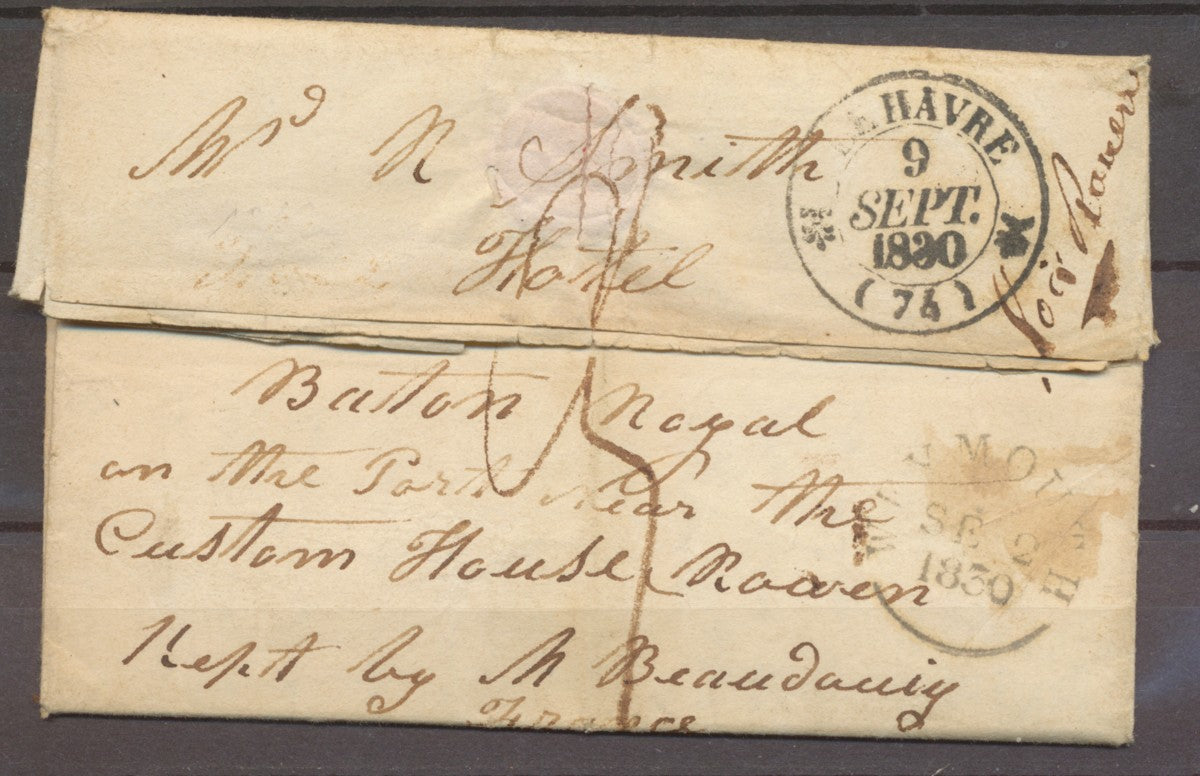 Mr d R Smith
Hotel
Baton Royal
on the Port Near the
Custom House Rowen
Kept by M Beaudouig
France
LE HAVRE
9
SEPT.
1830
(74)
voir Romere
WEYMOUTH
SE 2
1830